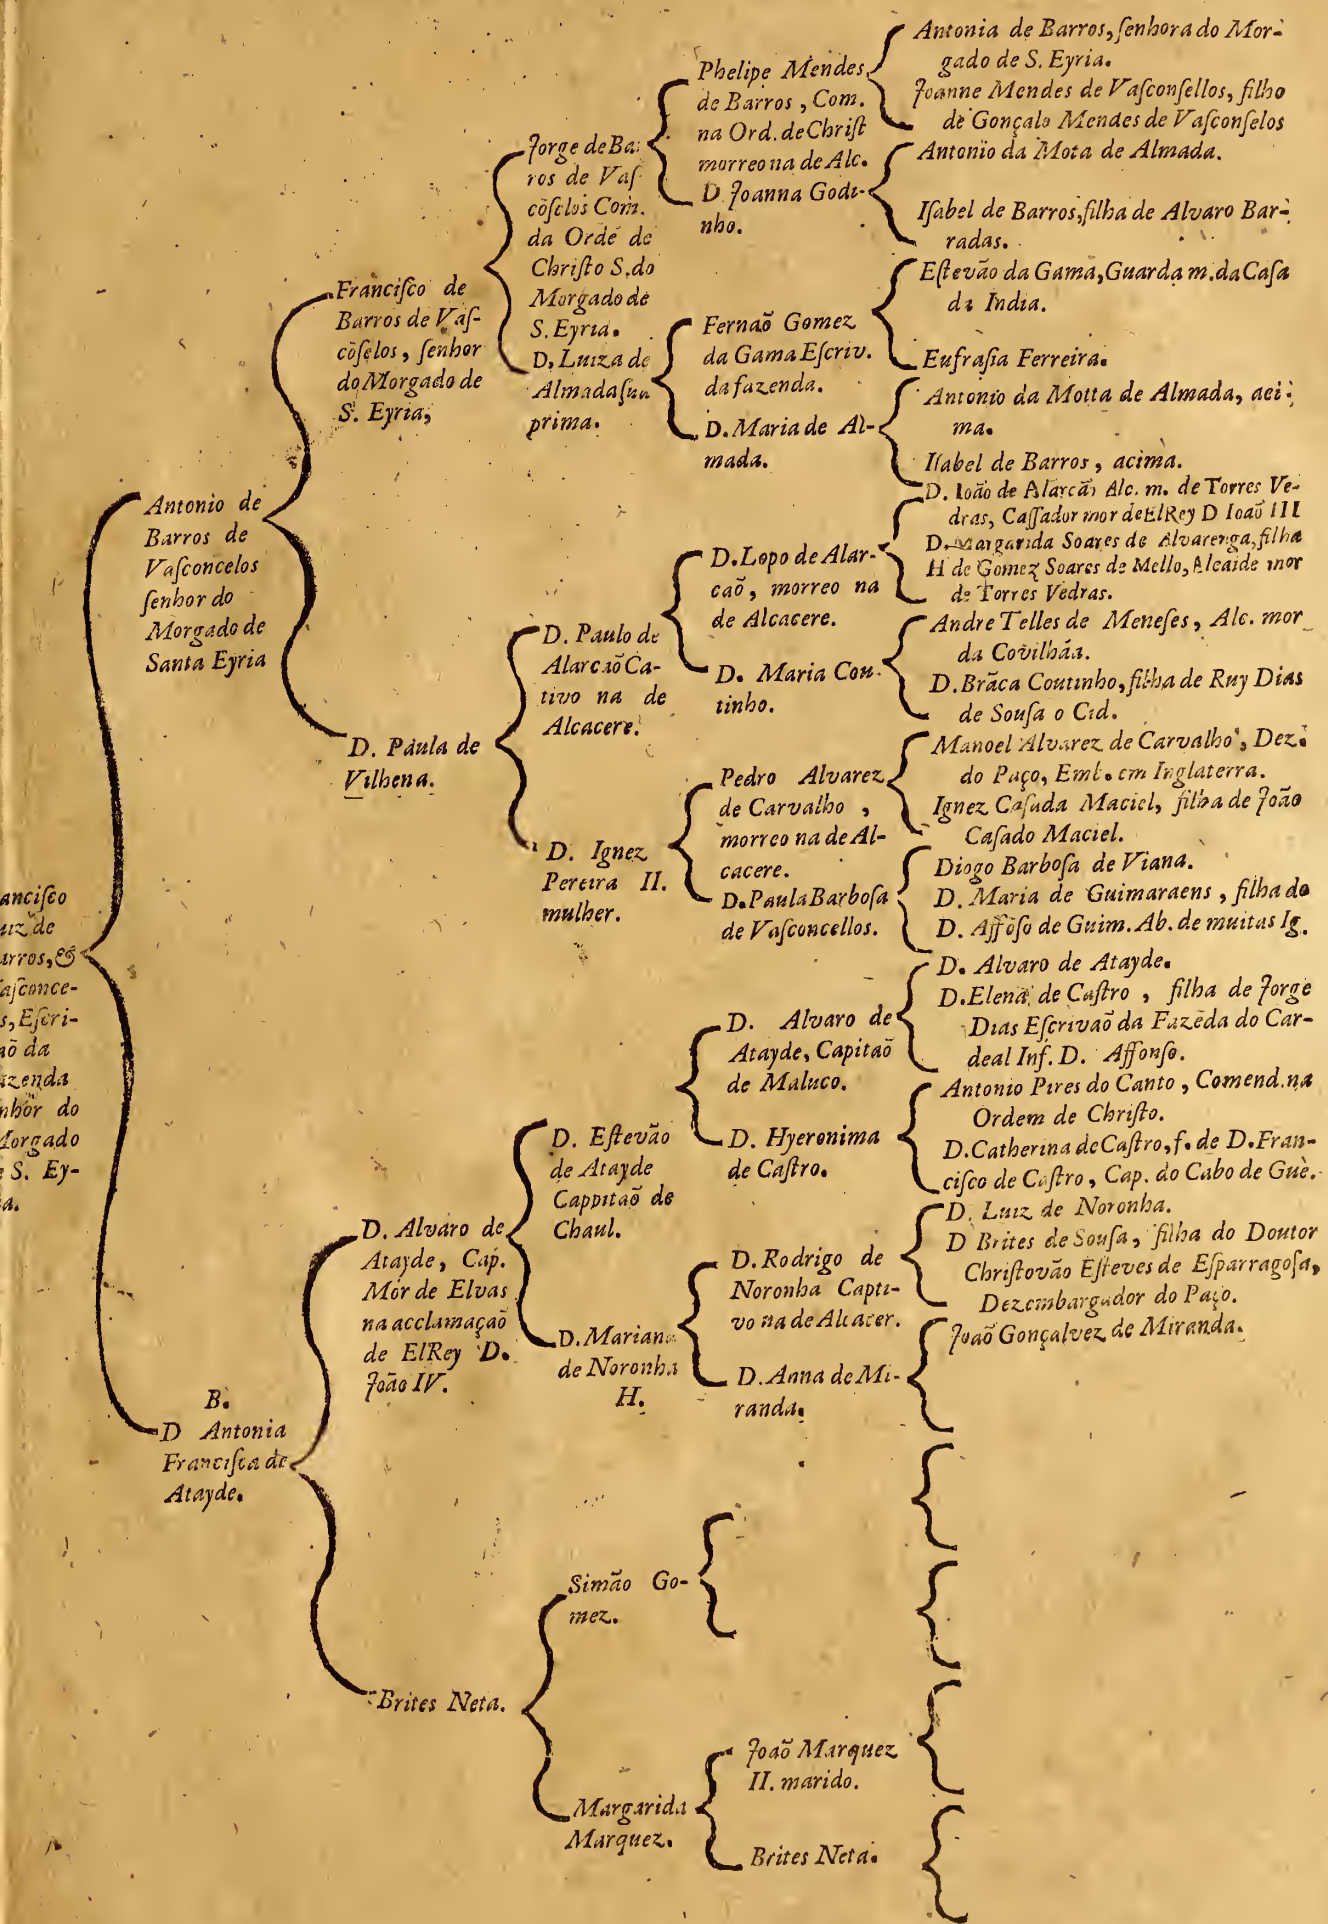 anciſco
uiz de
arros, &
aſconce-
s, Eſcri-
aõ da
azenda
nhor do
Morgado
e S. Ey-
a.
Antonio de
Barros de
Vaſconcelos
ſenhor do
Morgado de
Santa Eyria
B.
D Antonia
Franciſca de
Atayde.
Franciſco de
Barros de Vaſ-
cõſelos, ſenhor
do Morgado de
S. Eyria,
D. Paula de
Vilhena.
D. Alvaro de
Atayde, Cap.
Mór de Elvas
na acclamaçaõ
de ElRey D.
Joaõ IV.
Brites Neta.
Jorge de Ba-
ros de Vaſ-
cõſelos Com.
da Ordé de
Chriſto S. do
Morgado de
S. Eyria.
D. Luiza de
Almada ſua
prima.
D. Paulo de
Alarcaõ Ca-
tivo na de
Alcacere.
D. Ignez
Pereira II.
mulher.
D. Eſtevão
de Atayde
Cappitaõ de
Chaul.
D. Mariana
de Noronha
H.
Simão Go-
mez.
Margarida
Marquez.
Phelipe Mendes
de Barros, Com.
na Ord. de Chriſt
morreo na de Alc.
D. Joanna Godi-
nho.
Fernaõ Gomez
da Gama Eſcriv.
da fazenda.
D. Maria de Al-
mada.
D. Lopo de Alar-
caõ, morreo na
de Alcacere.
D. Maria Cou-
tinho.
Pedro Alvarez
de Carvalho,
morreo na de Al-
cacere.
D. Paula Barboſa
de Vaſconcellos.
D. Alvaro de
Atayde, Capitaõ
de Maluco.
D. Hyeronima
de Caſtro.
D. Rodrigo de
Noronha Capti-
vo na de Alcacer.
D. Anna de Mi-
randa.
Joaõ Marquez
II. marido.
Brites Neta.
Antonia de Barros, ſenhora do Mor-
gado de S. Eyria.
Joanne Mendes de Vaſconſellos, filho
de Gonçalo Mendes de Vaſconſelos
Antonio da Mota de Almada.
Iſabel de Barros, filha de Alvaro Bar-
radas.
Eſtevão da Gama, Guarda m. da Caſa
da India.
Eufraſia Ferreira.
Antonio da Motta de Almada, aci-
ma.
Iſabel de Barros, acima.
D. Ioão de Alarcaõ Alc. m. de Torres Ve-
dras, Caſſador mor de ElRey D Ioaõ III
D. Margarida Soares de Alvarenga, filha
H de Gomez Soares de Mello, Alcaide mor
de Torres Vedras.
Andre Telles de Meneſes, Alc. mor
da Covilhãa.
D. Brãca Coutinho, filha de Ruy Dias
de Souſa o Cid.
Manoel Alvarez de Carvalho, Dez.
do Paço, Emb. em Inglaterra.
Ignez Caſada Maciel, filha de João
Caſado Maciel.
Diogo Barboſa de Viana.
D. Maria de Guimaraens, filha de
D. Affõſo de Guim. Ab. de muitas Ig.
D. Alvaro de Atayde.
D. Elena de Caſtro, filha de Jorge
Dias Eſcrivaõ da Fazēda do Car-
deal Inf. D. Affonſo.
Antonio Pires do Canto, Comend. na
Ordem de Chriſto.
D. Catherina de Caſtro, f. de D. Fran-
ciſco de Caſtro, Cap. do Cabo de Guè.
D. Luiz de Noronha.
D Brites de Souſa, filha do Doutor
Chriſtovão Eſteves de Eſparragoſa,
Dezembargador do Paço.
Joaõ Gonçalvez de Miranda.